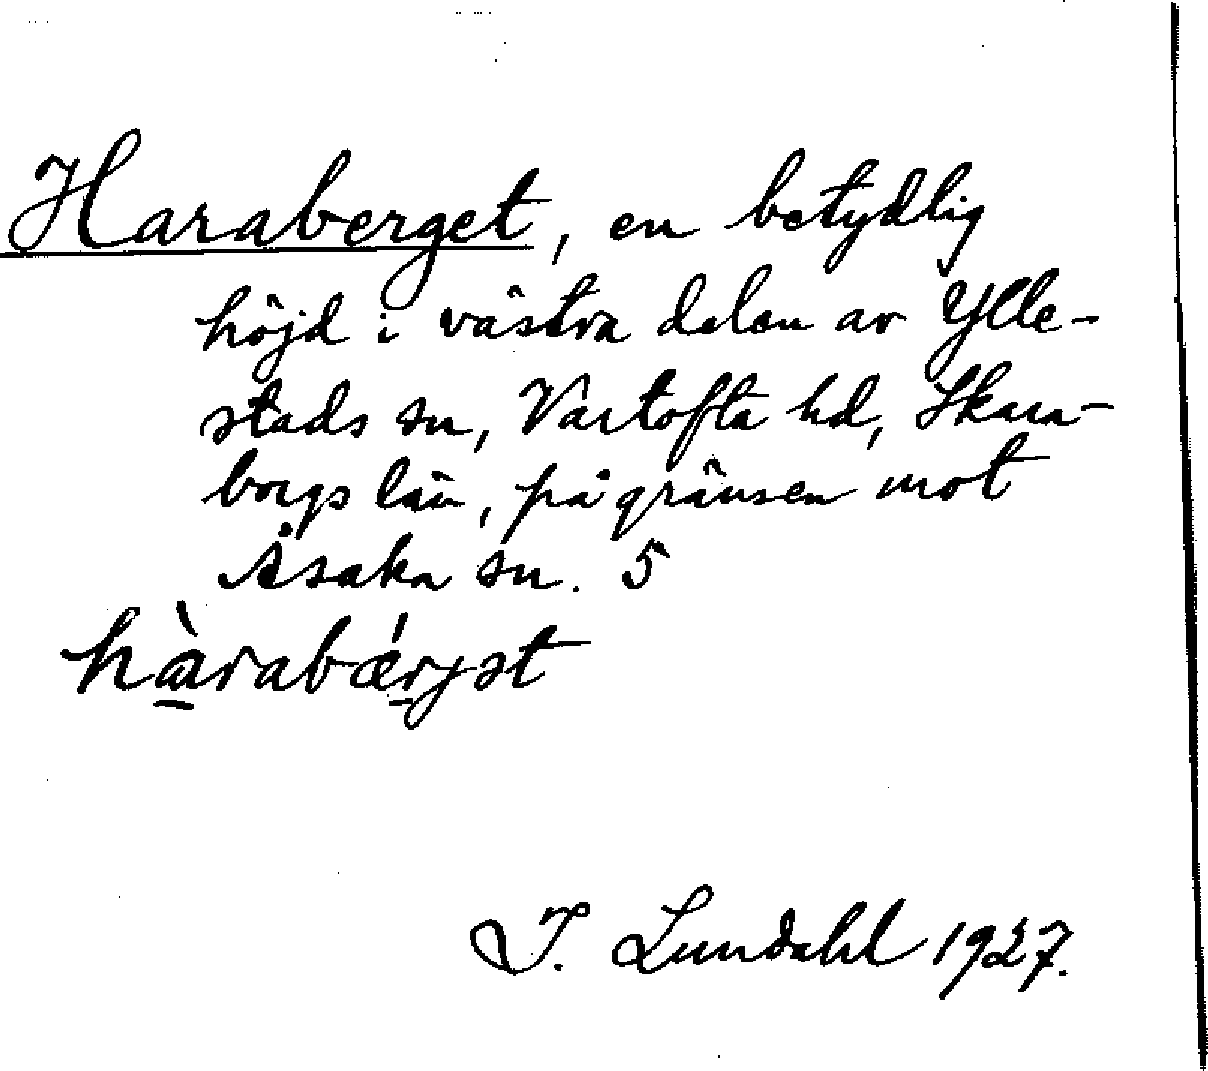 Haraberget, en betydlig
höjd i västra delen av Ylle-
stads sn, Vartofta hd, Skara-
borgs län, på gränsen mot
Åsaka sn. 5
hàrabǽrjət
I. Lundahl 1927.